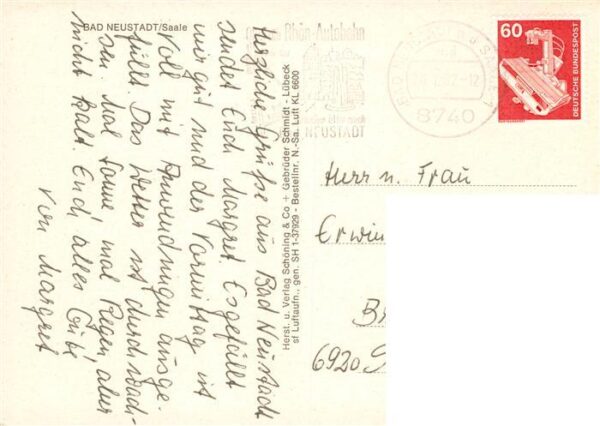 BAD NEUSTADT/Saale
Herzliche Grüße aus Bad Neustadt
sendet Euch Margret. Es gefällt
mir gut und der Vormittag ist
voll mit Anwendungen ausge-
füllt. Das Wetter ist durchwach-
sen. Mal Sonne, mal Regen, aber
nicht kalt. Euch alles Gute
von Margret
Herst. u. Verlag Schöning & Co + Gebrüder Schmidt - Lübeck
sf Luftaufn., gen. SH 1-37929 - Bestellnr. N.-Sa. Luft KL 6600
Rhön-Autobahn
NEUSTADT
8740
60
DEUTSCHE BUNDESPOST
Herr u. Frau
Erwin
6920